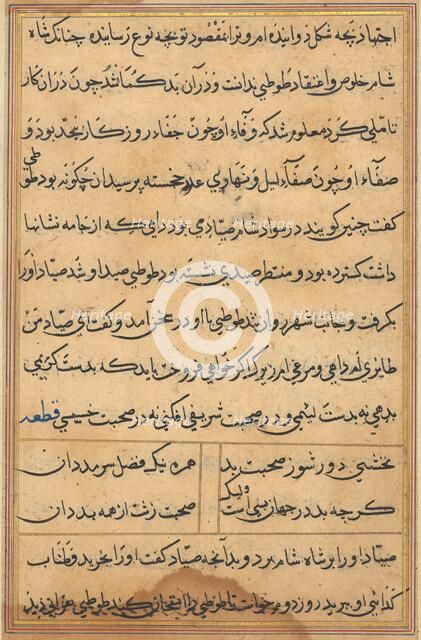 اجتهاد بچه شکل دوانیده ام و ترا بمقصود تو بچه نوع رسانیده چنانکه شاه
شام خلوص و اعتقاد طوطی بدانست و در آن بد کمان شد چون در آن کار
تاملی کرد معلوم شد که وفاء او چون جفاء روزکار بیحد بود و
صفاء او چون صفاء لیل و نهار بی عدد خجسته پرسید آن چکونه بود طوطی
کفت چنین کویند در سواد شام صیادی بود دامی که از جامه نشانها
داشت کسترده بود و منتظر صیدی نشسته بود طوطی صید او شد صیاد او را
بکرفت و جانب شهر روان شد طوطی با او در سخن آمد و کفت ای صیاد من
طایری ام داهی و مرغی ام زیرک اکر خواهی فروخت باید که بدست کریمی
بدهی نه بدست لئیمی و در صحبت شریفی افکنی نه در صحبت خسیسی قطعه
نخشبی دور شو ز صحبت بد همره نیک فضل سرمد دان
کرچه بد در جهان بسی است ولیک صحبت زشت از همه بد دان
صیاد او را بر شاه شام برد و بدانچه صیاد کفت او را بخرید
کدائی او ببرید روز دوم خواست تا طوطی را امتحان کند طوطی